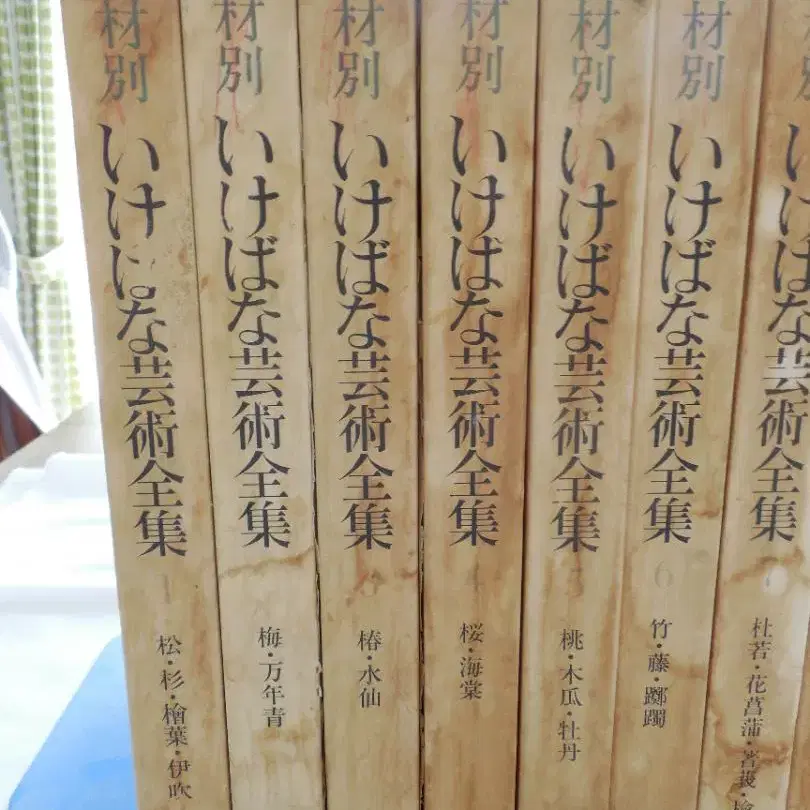 材別
いけばな芸術全集
1
松・杉・檜葉・伊吹
材別
いけばな芸術全集
梅・万年青
材別
いけばな芸術全集
椿・水仙
材別
いけばな芸術全集
4
桜・海棠
材別
いけばな芸術全集
5
桃・木瓜・牡丹
材別
いけばな芸術全集
6
竹・藤・躑躅
いけばな芸術全集
7
杜若・花菖蒲・著莪・